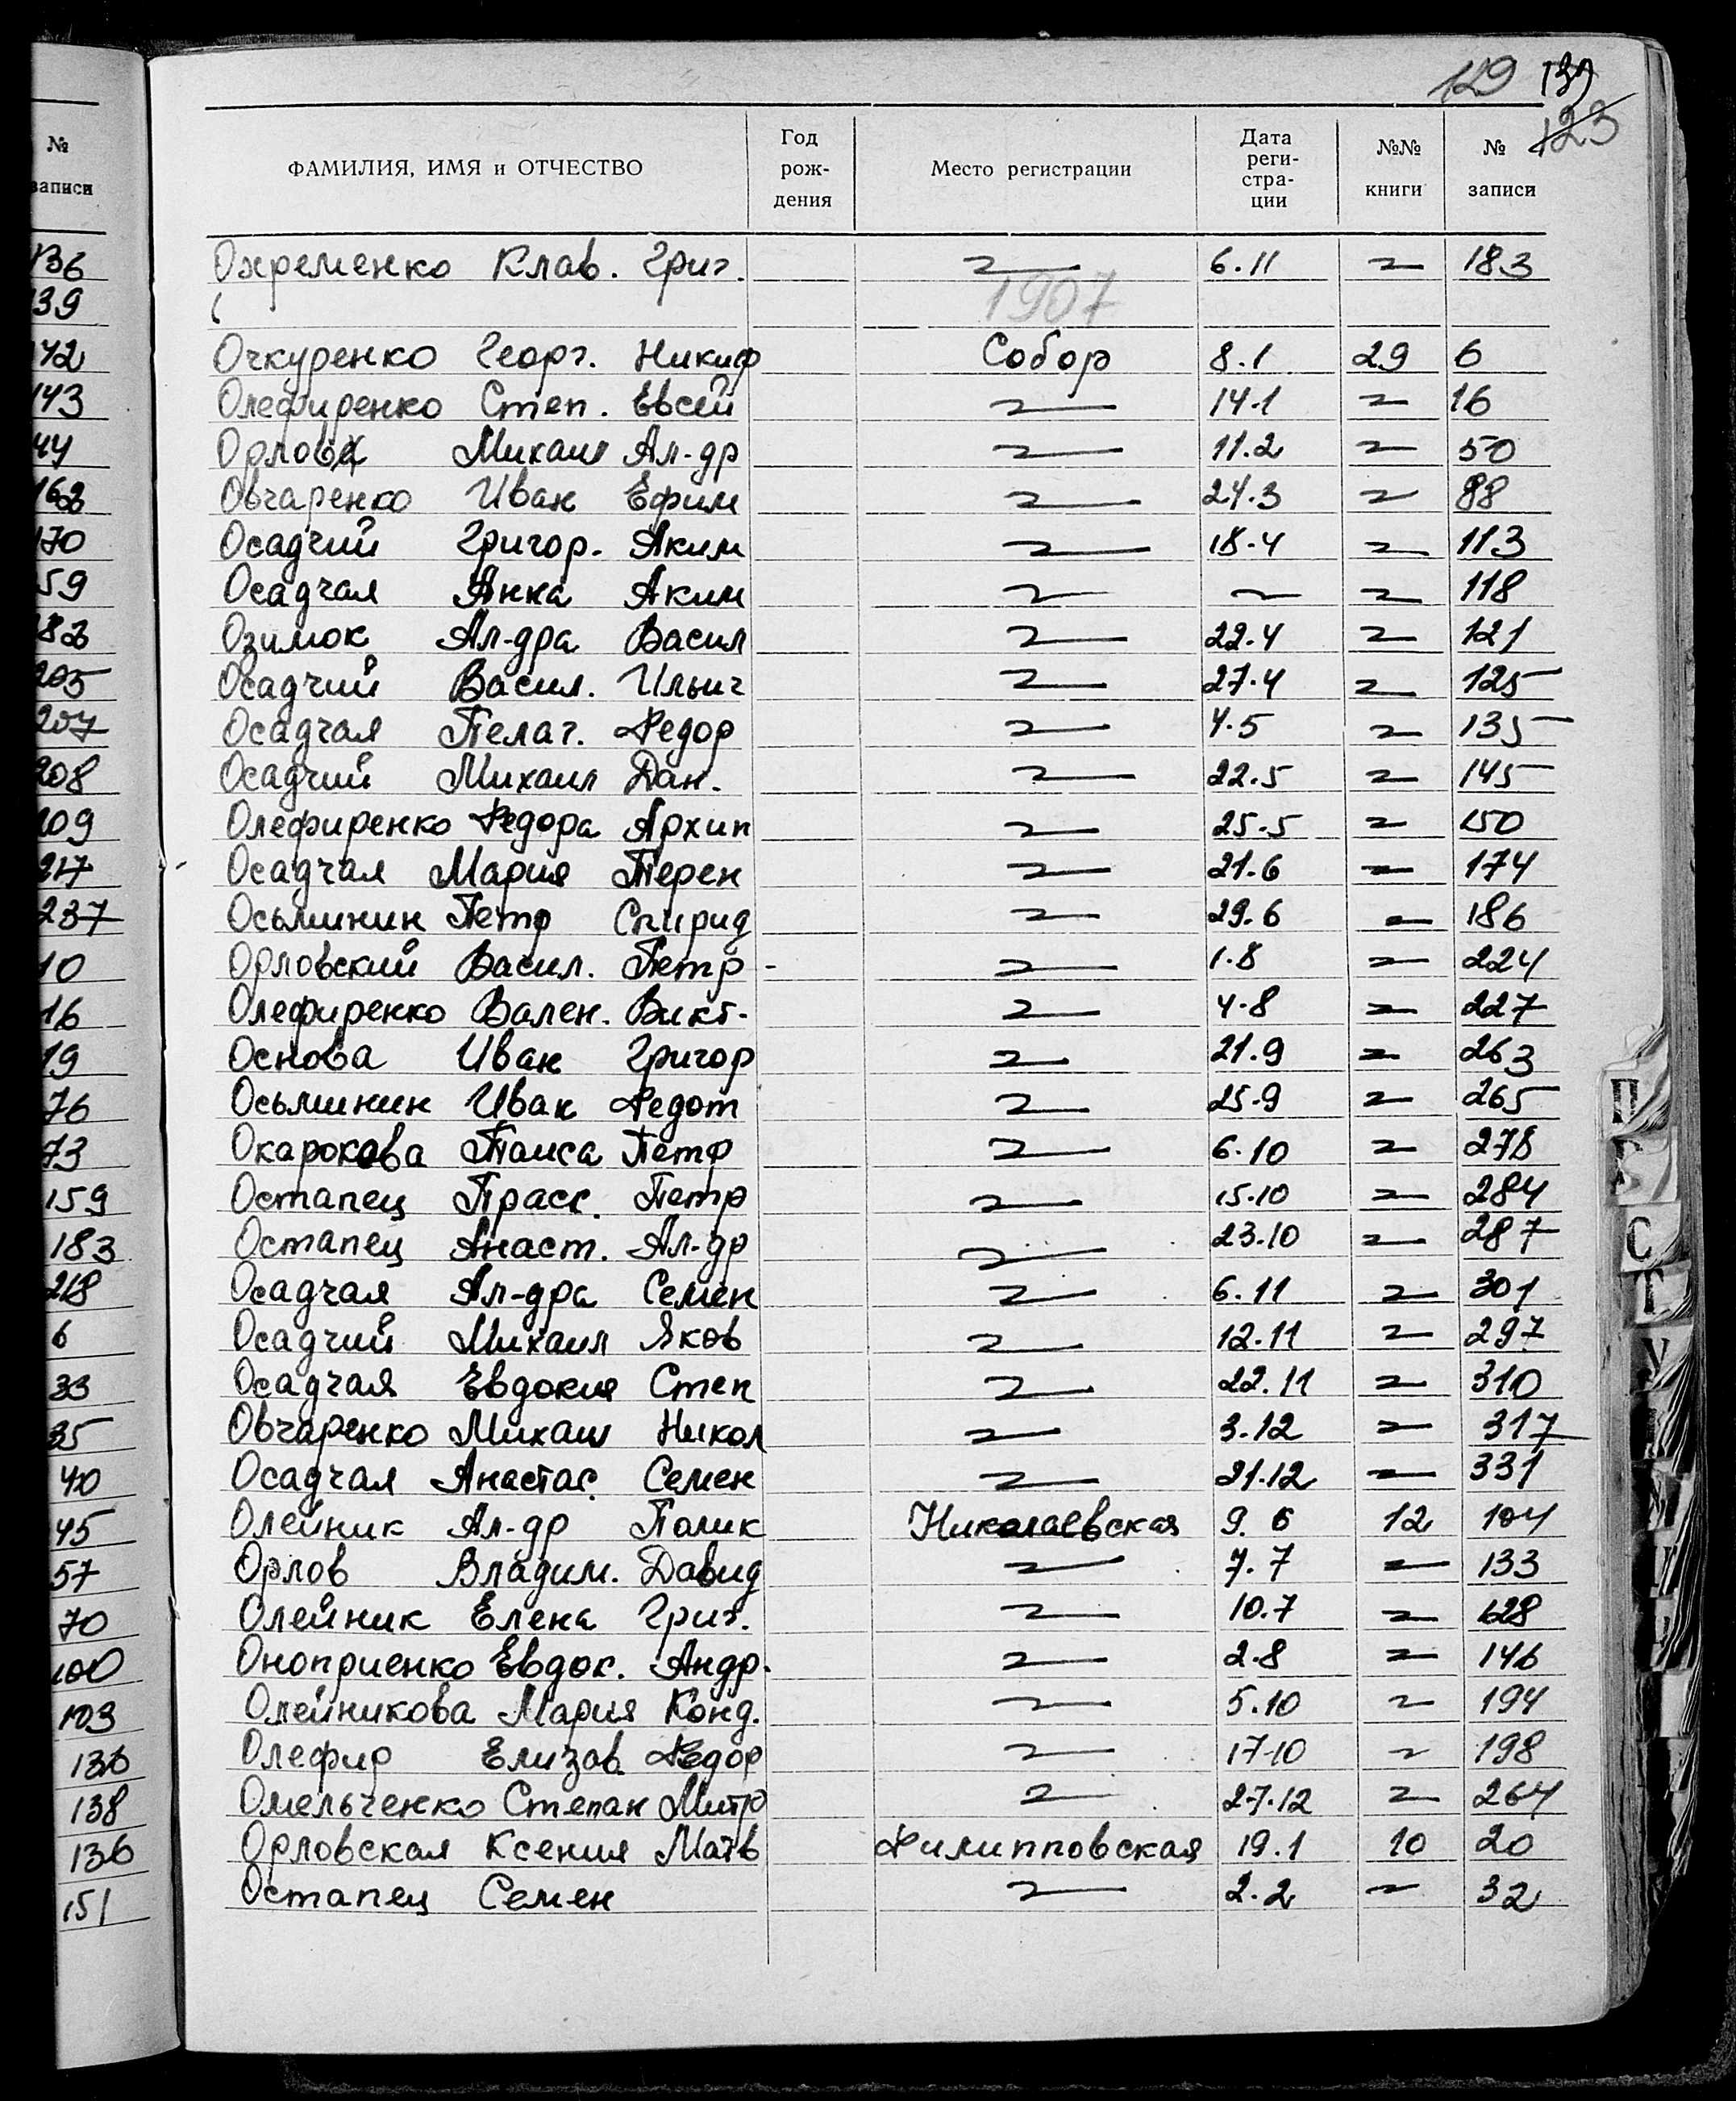 129 139
123
№ записи
ФАМИЛИЯ, ИМЯ и ОТЧЕСТВО Год рождения Место регистрации Дата регистрации №№ книги № записи
136 Охременко Клав. Григ. 6.11 183
39 1907
142 Очкуренко Георг. Никиф Собор 8.1 29 6
143 Олефиренко Степ. Евсей 14.1 16
44 Орлов Михаил Ал-др 11.2 50
Овчаренко Иван Ефим 24.3 88
170 Осадчий Григор. Аким 18.4 113
59 Осадчая Анна Аким 118
Озимок Ал-дра Васил 22.4 121
205 Осадчий Васил. Ильич 27.4 125
207 Осадчая Пелаг. Федор 4.5 135
208 Осадчий Михаил Дан. 22.5 145
109 Олефиренко Федора Архип 25.5 150
217 Осадчая Мария Терен 21.6 174
237 Осьминин Петр Спирид 29.6 186
10 Орловский Васил. Петр - 1.8 224
16 Олефиренко Вален. Викт. 4.8 227
19 Основа Иван Григор 21.9 263
76 Осьминин Иван Федот 25.9 265
73 Окарокова Таиса Петр 6.10 278
159 Остапец Праск. Петр 15.10 284
183 Остапец Анаст. Ал-др 23.10 287
218 Осадчая Ал-дра Семен 6.11 301
6 Осадчий Михаил Яков 12.11 297
33 Осадчая Евдокия Степ 22.11 310
35 Овчаренко Михаил Никол 3.12 317
40 Осадчая Анастас. Семен 21.12 331
45 Олейник Ал-др Полик Николаевская 9.6 12 104
57 Орлов Владим. Давид 7.7 133
70 Олейник Елена Григ. 10.7 128
100 Оноприенко Евдок. Андр. 2.8 146
103 Олейникова Мария Конд. 5.10 194
136 Олефир Елизав. Федор 17.10 198
138 Омельченко Степан Митр 27.12 264
136 Орловская Ксения Матв Филипповская 19.1 10 20
151 Остапец Семен 2.2 32
П
С
Т
У